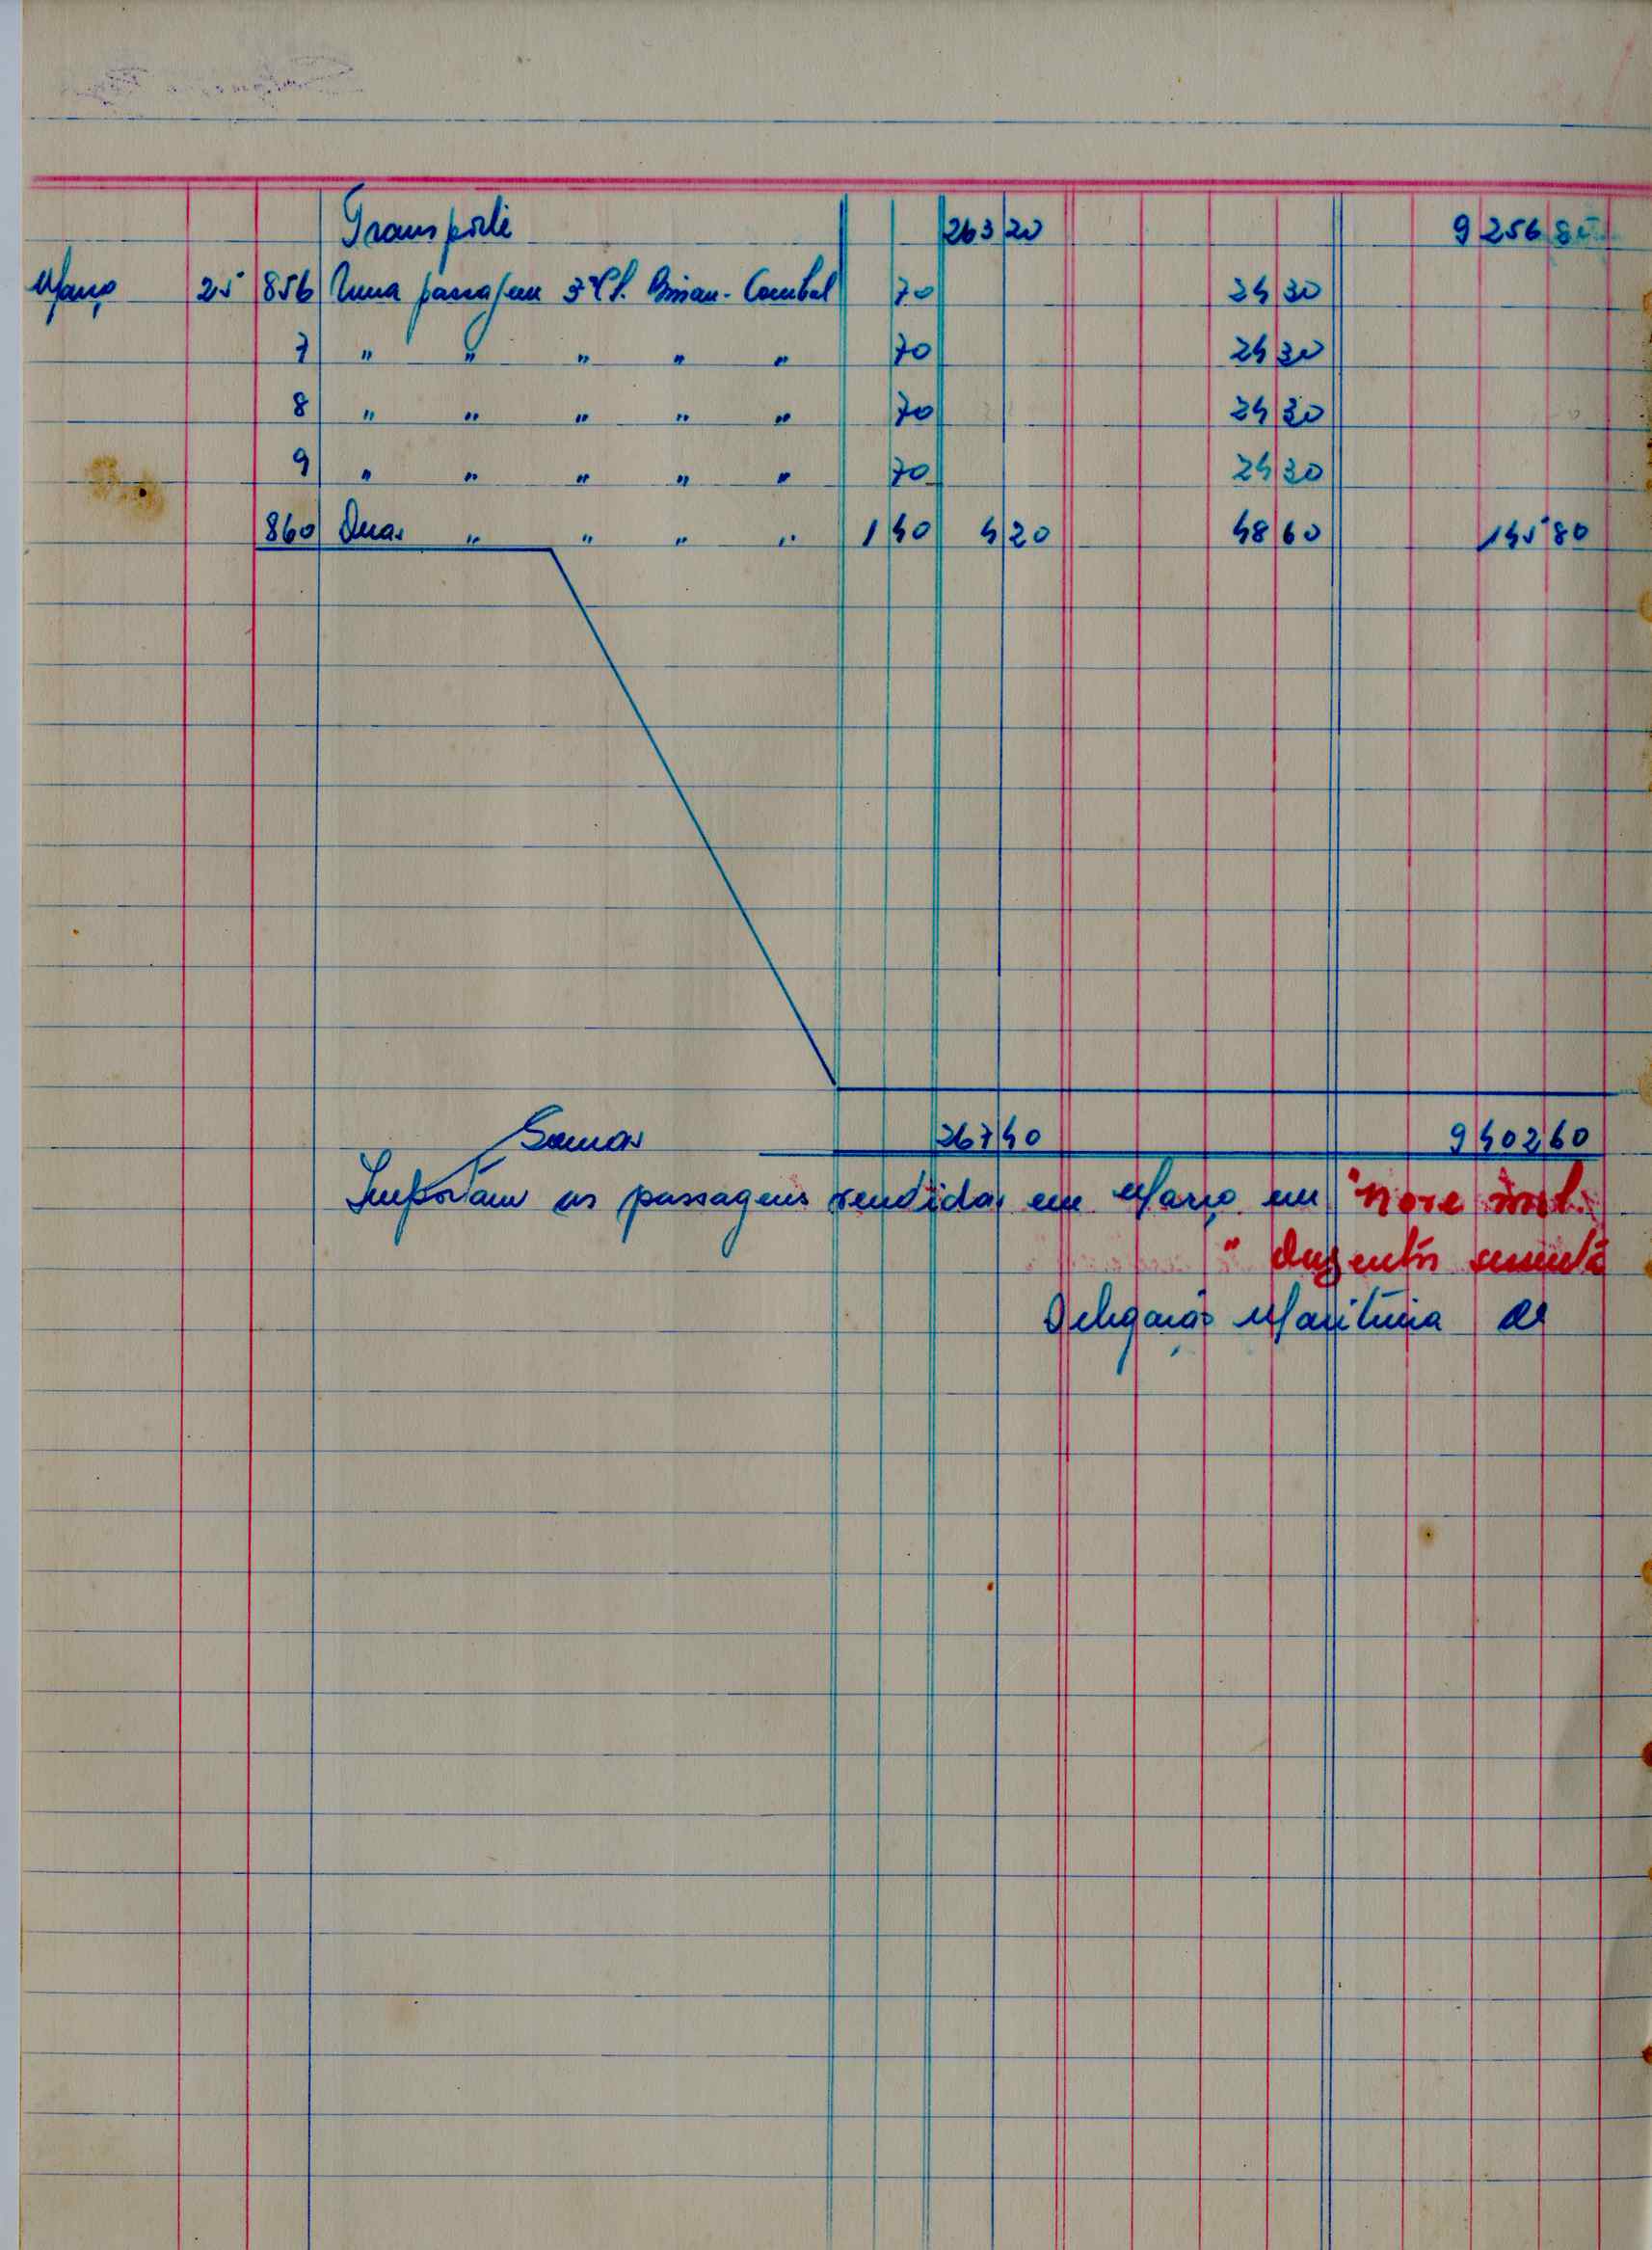 Transporte 263 20 9 256 80
Março 25 856 Uma passagem 3ª Cl. Bissau - Catubal 70 24 30
7 " " " " " 70 24 30
8 " " " " " 70 24 30
9 " " " " " 70 24 30
860 Duas " " " " 1 40 4 20 48 60 145 80
Somas 267 40 9 402 60
Importam as passagens vendidas em Março em "Nove mil
" duzentos
Delegação Marítima de